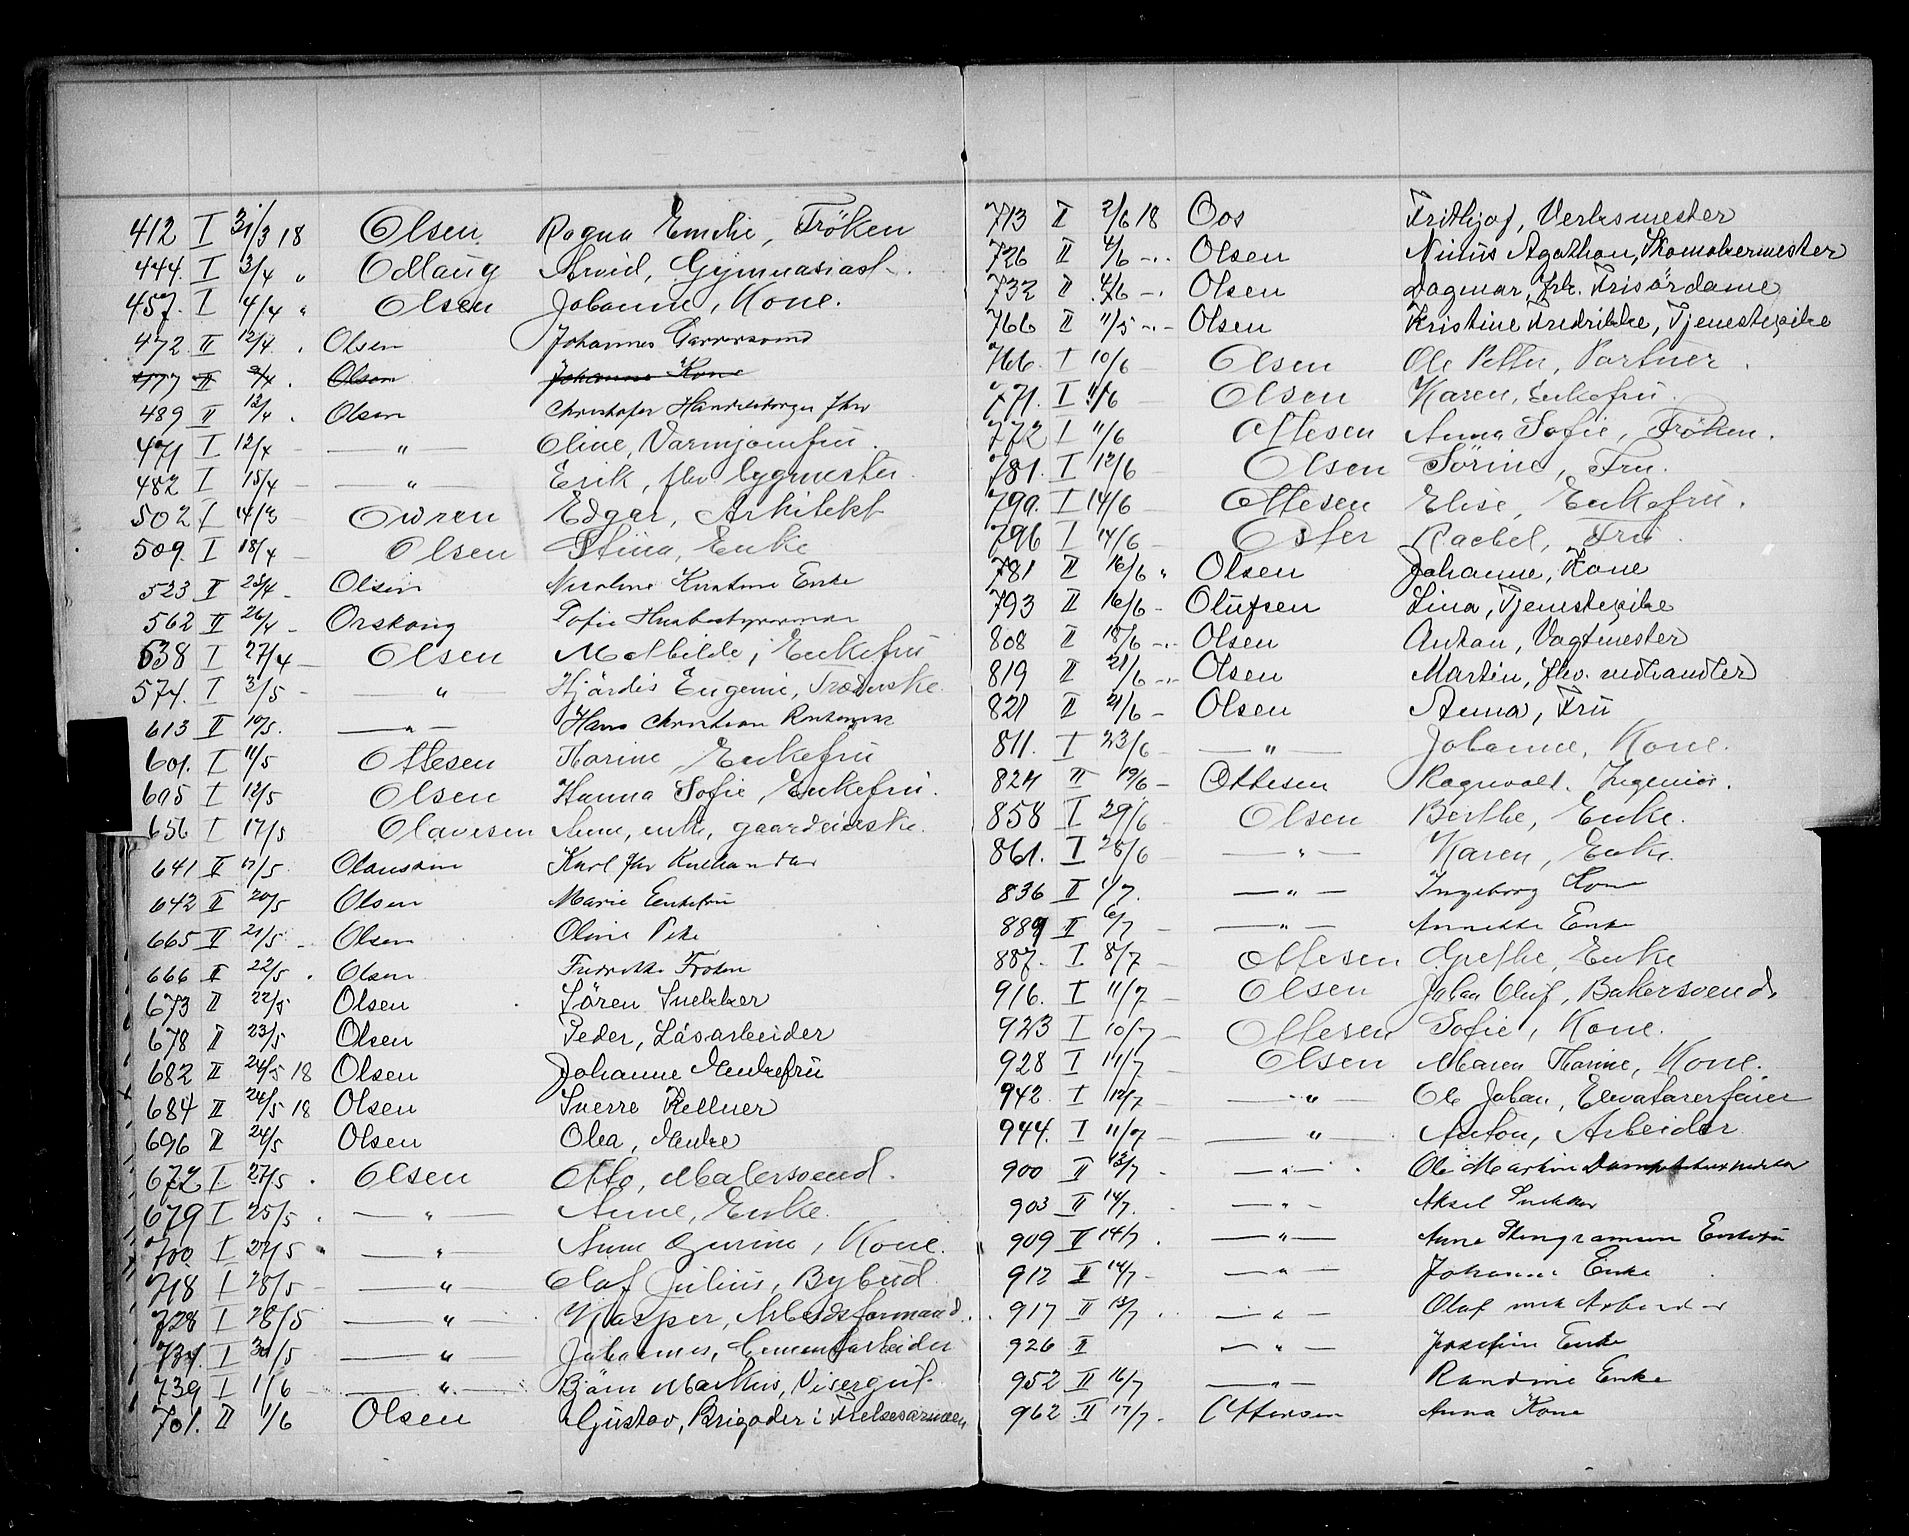 412 I 31/3 18 Olsen Ragna Emilie, Fröken
444. I 3/4 " Odlaug Arvid, Gymnasiast.
457. I 4/4 " Olsen Johanne, Kone.
472 II 12/4 . Olsen Johannes
477 II 9/4 . Olsen Johanne Kone
489 II 12/4 . Olsen Christofer Handelsborger Fhv
471 I 12/4 — " — Oline, Varmjomfru.
482 I 15/4 — — " — Erik, fhv bygmester.
502 I 14/3 Owren Edgar, Arkitekt
509. I 18/4 — Olsen Stina, Enke
523 II 23/4 - Olsen Nicoline Kirstine Enke
562 II 26/4 - Orskoug Sofie Husbestyrerinde
538 I 27/4 — Olsen Mathilde, Enkefru
574. I 3/5 - — " — Hjärdis Eugenie,
613 II 10/5. — " — Hans Christian
601. I 11/5 Ottesen Karine, Enkefru
605 I 12/5 Olsen Hanna Sofie, Enkefru.
656 I 17/5 Olavesen Anne, enke, gaardeierske.
641 II 17/5 Olaussen Karl Fhv
642 II 20/5 Olsen Marie Enkefru
665 II 21/5 - Olsen Oline Pike
666 II 22/5 . Olsen Fredrikke Frøken
673 II 22/5 Olsen Sören Snekker
678 II 23/5 Olsen Peder, Läsarbeider
682 II 24/5 18 Olsen Johanne Enkefru
684 II 24/5 18 Olsen Sverre Kellner
696 II 24/5 Olsen Olea, Enke
672 I 27/5 . Olsen Otto, Malersvend.
679 I 25/5 . — " — Anne, Enke.
700 I 27/5 " — " — Anne Gurine, Kone.
718 I 28/5 — — " — Olaf Julius, Bybud
728 I 28/5 — " — Kasper, Arbeidsformand.
737. I 30/5 — " — Johannes, Cementarbeider
739 I 1/6 — — " — Bjärn Markus, Visergut.
701. II 1/6 Olsen Gustav, Brigader i Frelsesarmeen
713 II 2/6 18 Oos Fridhjof, Verksmester
726 II 4/6 -"- Olsen Ninus Agathon, Skomakermester
732 II 4/6 -"- Olsen Dagmar, frk. Frisördame
766 II 11/5 -"- Olsen Kristine Fredrikke, Tjenestepike
766. I 10/6 - Olsen Ole Petter, Portner.
771. I 11/6 Olsen Karen, Enkefru.
772 I 11/6 Ottesen Anna Sofie, Fröken.
781. I 12/6 — Olsen Sörine, Fru.
790. I 14/6 Ottesen Elise, Enkefru.
796 I 14/6 — Oster Rachel, Fru.
781 II 16/6 " Olsen Johanne, Kone
793 II 16/6 - Olufsen Lina, Tjenestepike
808 II 18/6 -"- Olsen Anton, Vagtmester
819 II 21/6 -"- Olsen Martin, fhv. vedhandler
821 II 21/6 - Olsen Anna, Fru
811. I 23/6 — " — Johanne, Kone.
824 II 19/6 - Ottesen Ragnvald. Ingeniör.
858 I 29/6 — Olsen Berthe, Enke.
861. I 25/6 — " — Karen, Enke.
836 II 1/7. — " — Ingeborg Kone
889 II 6/7 - — " — Annette Enke
887. I 8/7 — Ottesen Grethe, Enke
916. I 11/7 — Olsen Johan Oluf, Bakersvend.
923 I 10/7 — Ottesen Sofie, Kone.
928 I 11/7 — Olsen Maren Karine, Kone.
942. I 12/7 — — " — Ole Johan, Elevatorerförer
944. I 11/7 — — " — Anton, Arbeider
900 II 13/7 . — " — . Ole Martin
903 II 14/7. — " - Aksel Snekker
909 II 14/7 . — " — Anne Enkefru
912 II 14/7 - — " — Johanne Enke
917 II 13/7 . — " — Olaf Arbeider
926 II — " — Josefine Enke
952 II 16/7 — " — Randine Enke
962 II 17/7. Ottersen Anna Kone